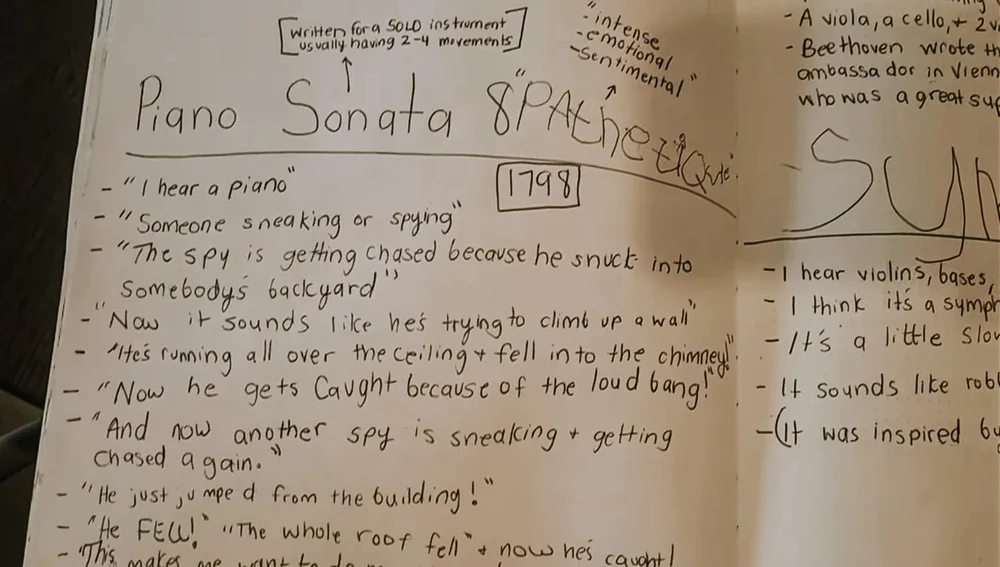 [Written for a SOLO instrument
usually having 2-4 movements]
"-intense
-emotional
-Sentimental"
Piano Sonata 8 "PAthetique"
1798
- "I hear a piano"
- "Someone sneaking or spying"
- "The spy is getting chased because he snuck into
somebody's backyard"
- "Now it sounds like he's trying to climb up a wall"
- "He's running all over the ceiling + fell into the chimney!"
- "Now he gets Caught because of the loud bang!"
- "And now another spy is sneaking + getting
chased again."
- "He just jumped from the building!"
- "He FELL!" "The whole roof fell" + now he's caught!
- "This makes me want to
- A viola, a cello, + 2
- Beethoven wrote
ambassador in Vienn
who was a great
Sy
- I hear violins, bases,
- I think it's a symph
- It's a little slow
- It sounds like
- (It was inspired by